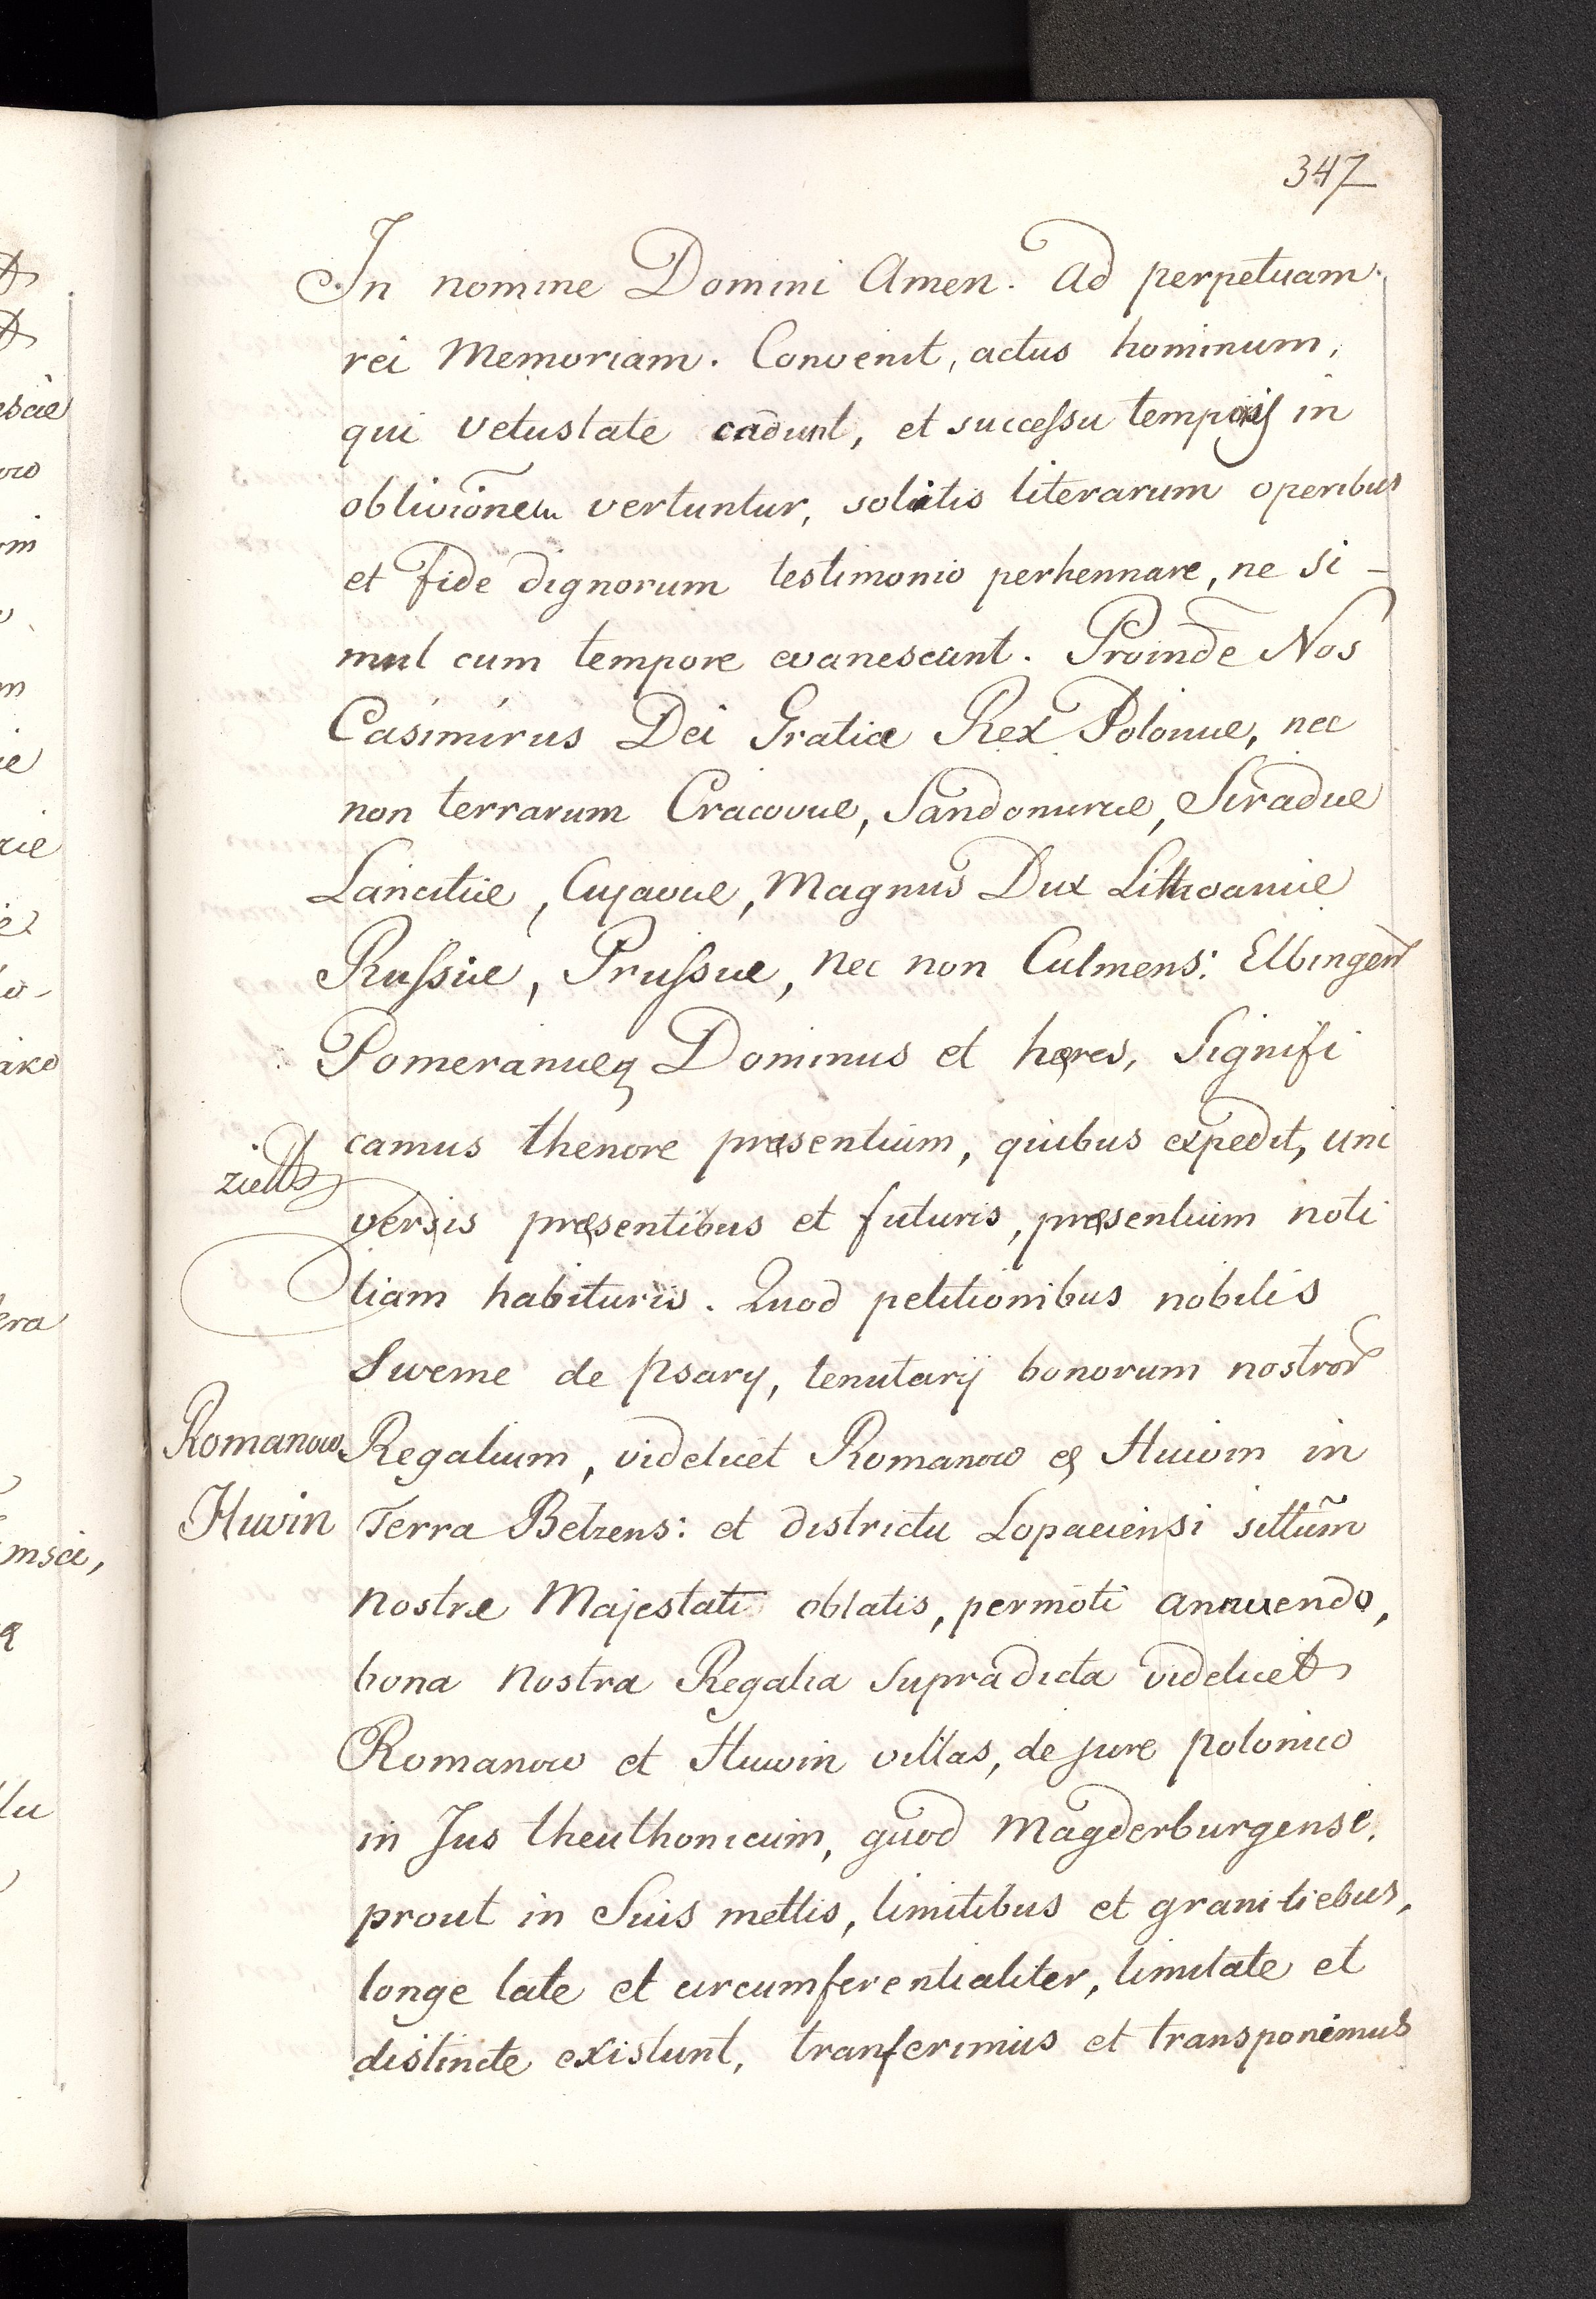 347
In nomine Domini Amen. Ad perpetuam
rei Memoriam. Convenit, actus hominum,
qui vetustate cadunt, et successu temporis in
oblivionem vertuntur, solitis literarum operibus
et fide dignorum testimonio perhennare, ne si-
mul cum tempore evanescant. Proinde Nos
Casimirus Dei Gratia Rex Poloniae, nec
non terrarum Cracoviae, Sandomiriae, Siradiae
Lancitiae, Cujaviae, Magnus Dux Lithvaniae
Russiae, Prussiae, nec non Culmens: Elbingens
Pomeraniaeq Dominus et haeres, Signifi
camus thenore praesentium, quibus expedit, uni
versis praesentibus et futuris, praesentium noti
tiam habituris. Quod petitionibus nobilis
Sweme de Psary, tenutarij bonorum nostror
Romanow Regalium, videlicet Romanow et Huwin in
Huwin Terra Belzens: et districtu Lopaciensi sittum
Nostrae Majestati oblatis, permoti annuendo,
bona Nostra Regalia supradicta videlicet
Romanow et Huwin villas, de jure polonico
in Jus theuthonicum, quod Magderburgense,
prout in Suis mettis, limitibus et granitiebus,
longe late et circumferentialiter, limitate et
distincte existunt, tranferimus et transponimus